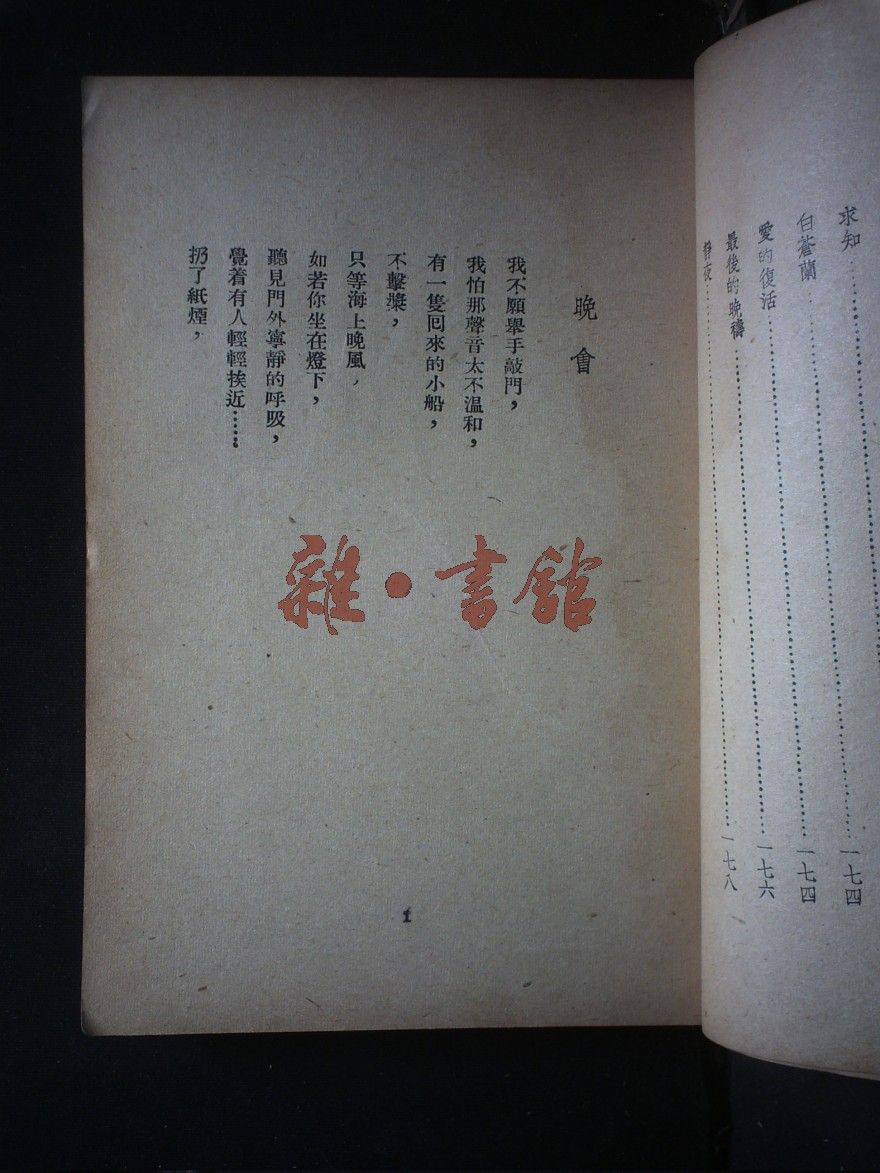 求知……一七四
白蒼蘭……一七四
愛的復活……一七六
最後的晚禱……一七八
靜夜……
晚會
我不願舉手敲門，
我怕那聲音太不溫和，
有一隻囘來的小船，
不擊槳，
只等海上晚風，
如若你坐在燈下，
聽見門外寧靜的呼吸，
覺着有人輕輕挨近……
扔了紙煙，
雜·書館
1